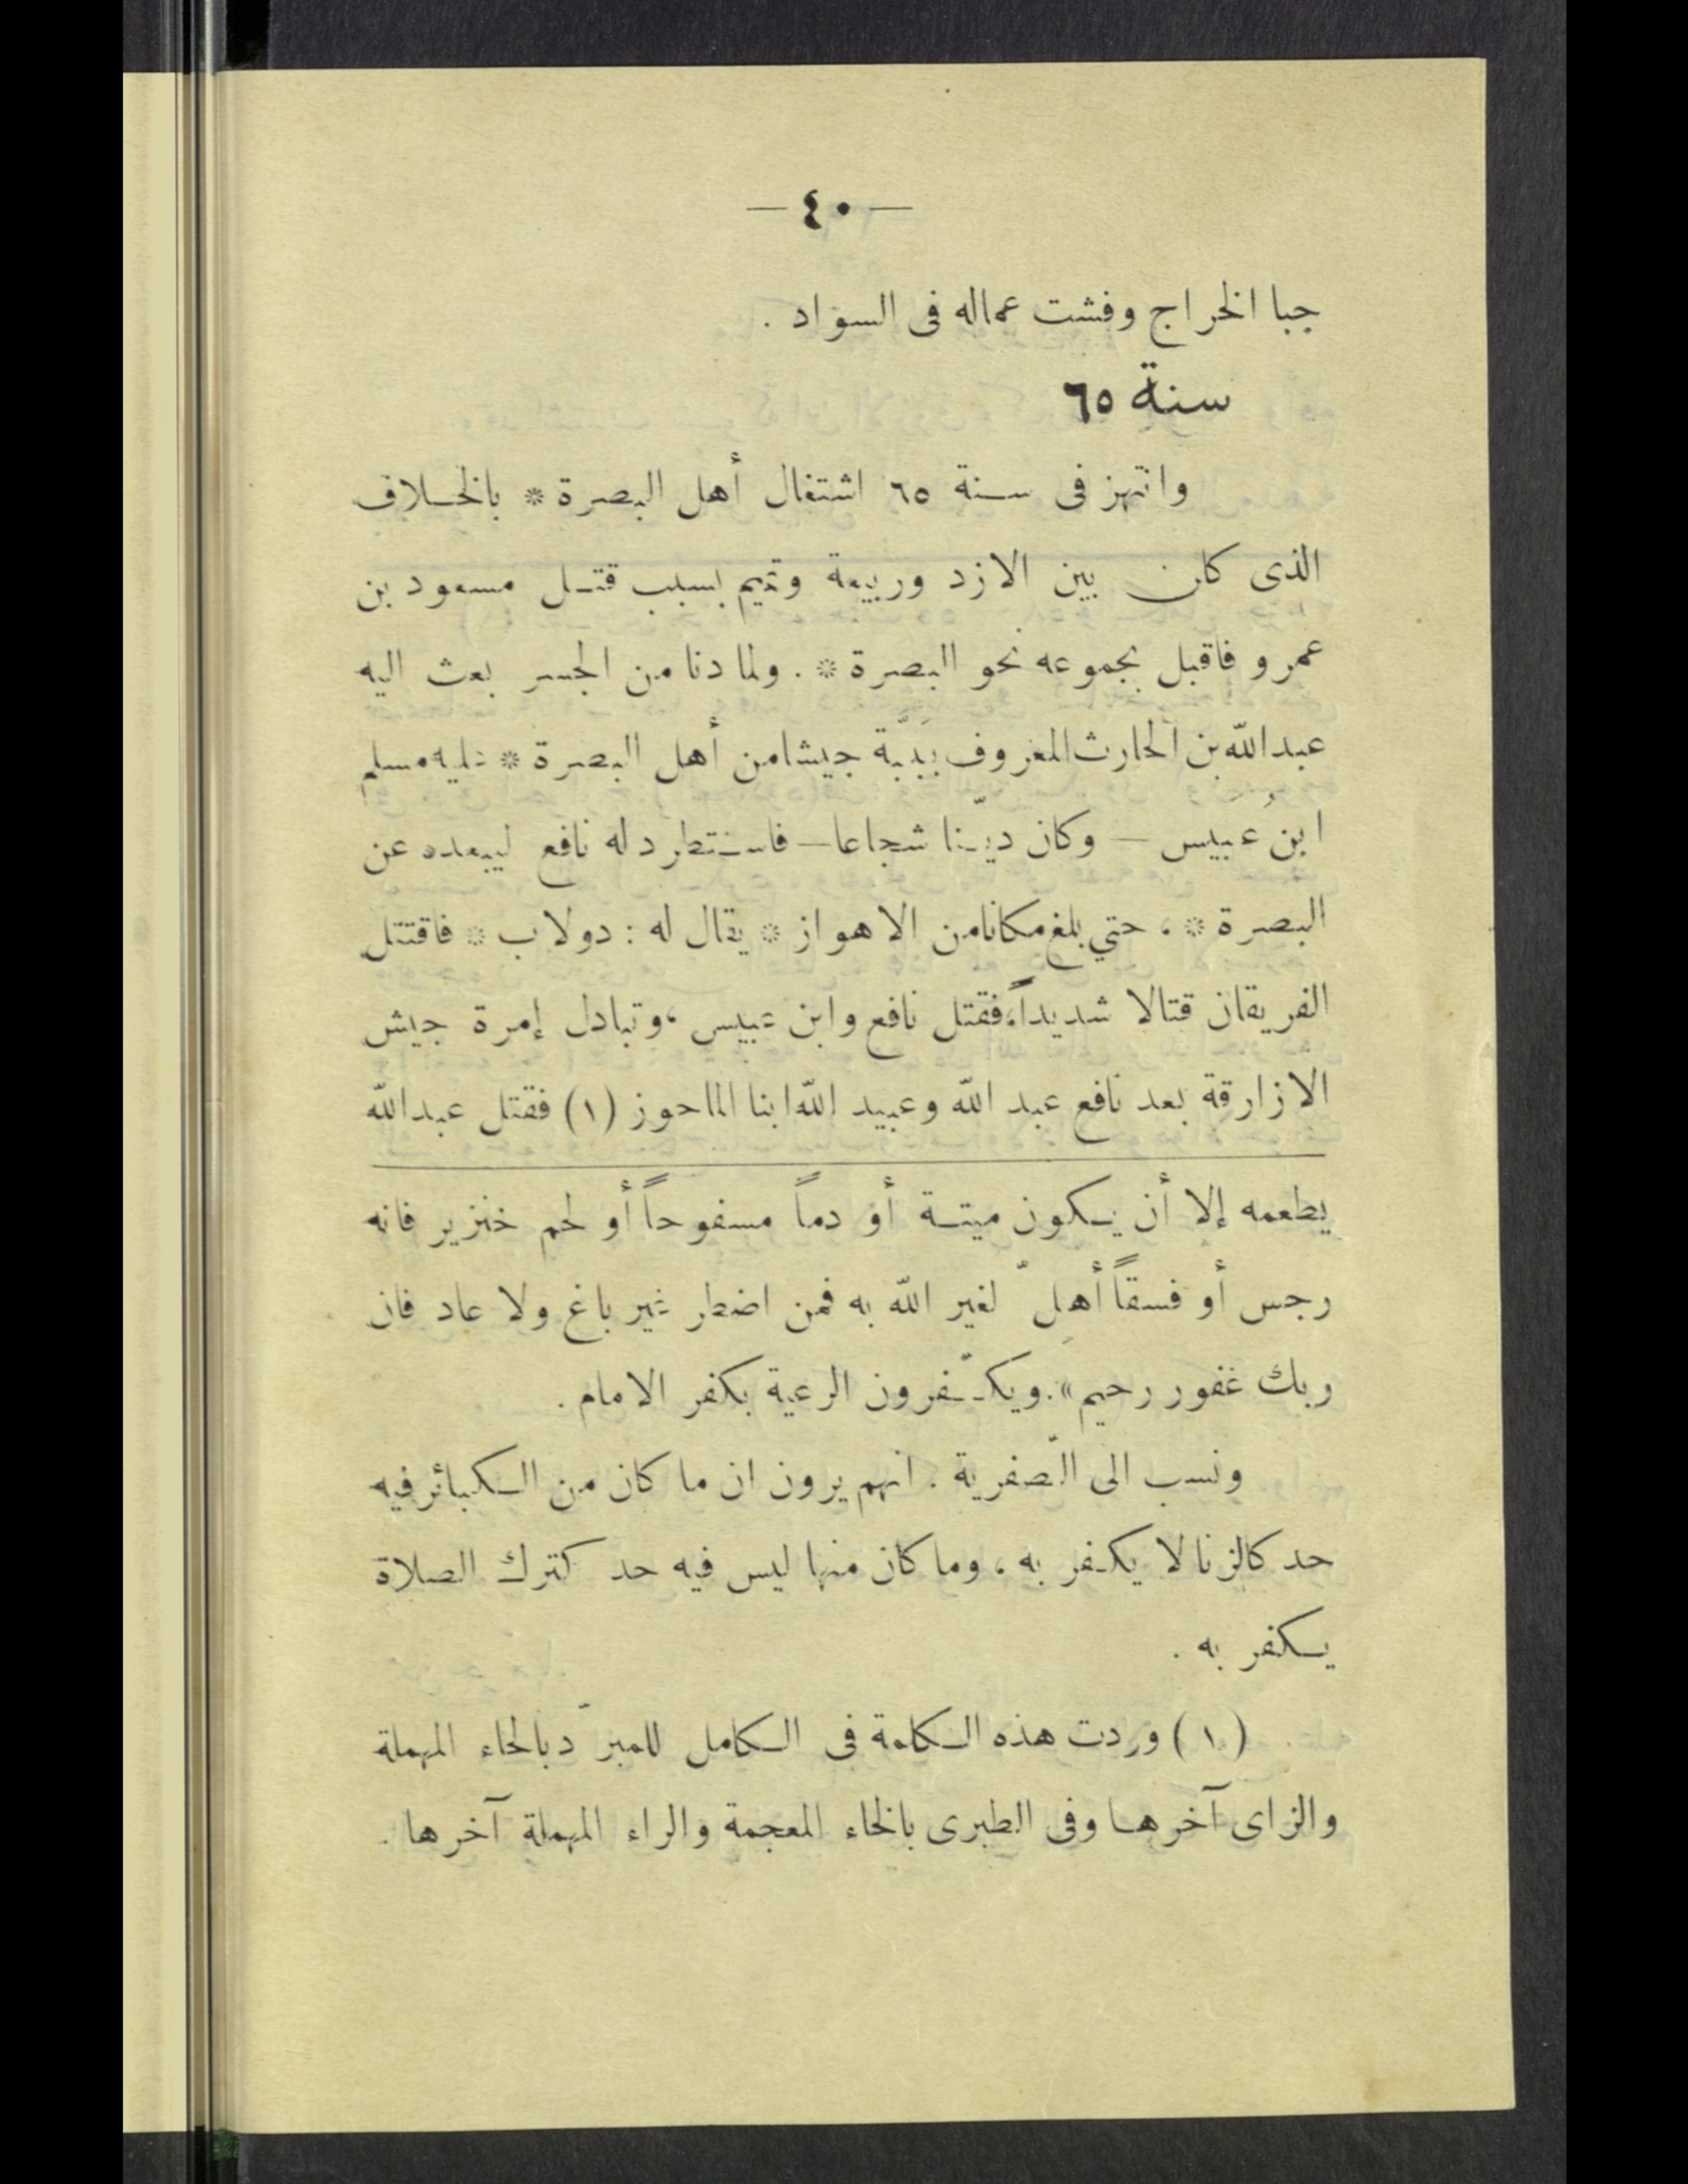 — ٤٠ —
جبا الخراج وفشت عماله فى السواد .
سنة ٦٥
وانتهز فى سنة ٦٥ اشتغال أهل البصرة * بالخلاف
الذى كان بين الازد وربيعة وتميم بسبب قتل مسعود بن
عمرو فاقبل بجموعه نحو البصرة * . ولما دنا من الجسر بعث اليه
عبد الله بن الحارث المعروف بِبَبَّة جيشا من أهل البصرة * عليه مسلم
ابن عُبيس — وكان ديّنا شجاعا — فاستطرد له نافع ليبعده عن
البصرة * ، حتي بلغ مكانا من الاهواز * يقال له : دولاب * فاقتتل
الفريقان قتالا شديداً، فقتل نافع وابن عبيس ، وتبادل إمرة جيش
الازارقة بعد نافع عبد الله وعبيد الله ابنا الماحوز (١) فقتل عبد الله
يطعمه إلا أن يكون ميتة أو دماً مسفوحاً أو لحم خنزير فانه
رجس أو فسقاً أهلّ لغير الله به فمن اضطر غير باغ ولا عاد فان
ربك غفور رحيم» . ويكفّرون الرعية بكفر الامام .
ونسب الى الصّفرية . انهم يرون ان ما كان من الكبائر فيه
حد كالزنا لا يكفر به ، وما كان منها ليس فيه حد كترك الصلاة
يكفر به .
(١) وردت هذه الكلمة فى الكامل للمبرّد بالحاء المهملة
والزاى آخرها وفى الطبرى بالخاء المعجمة والراء المهملة آخرها .